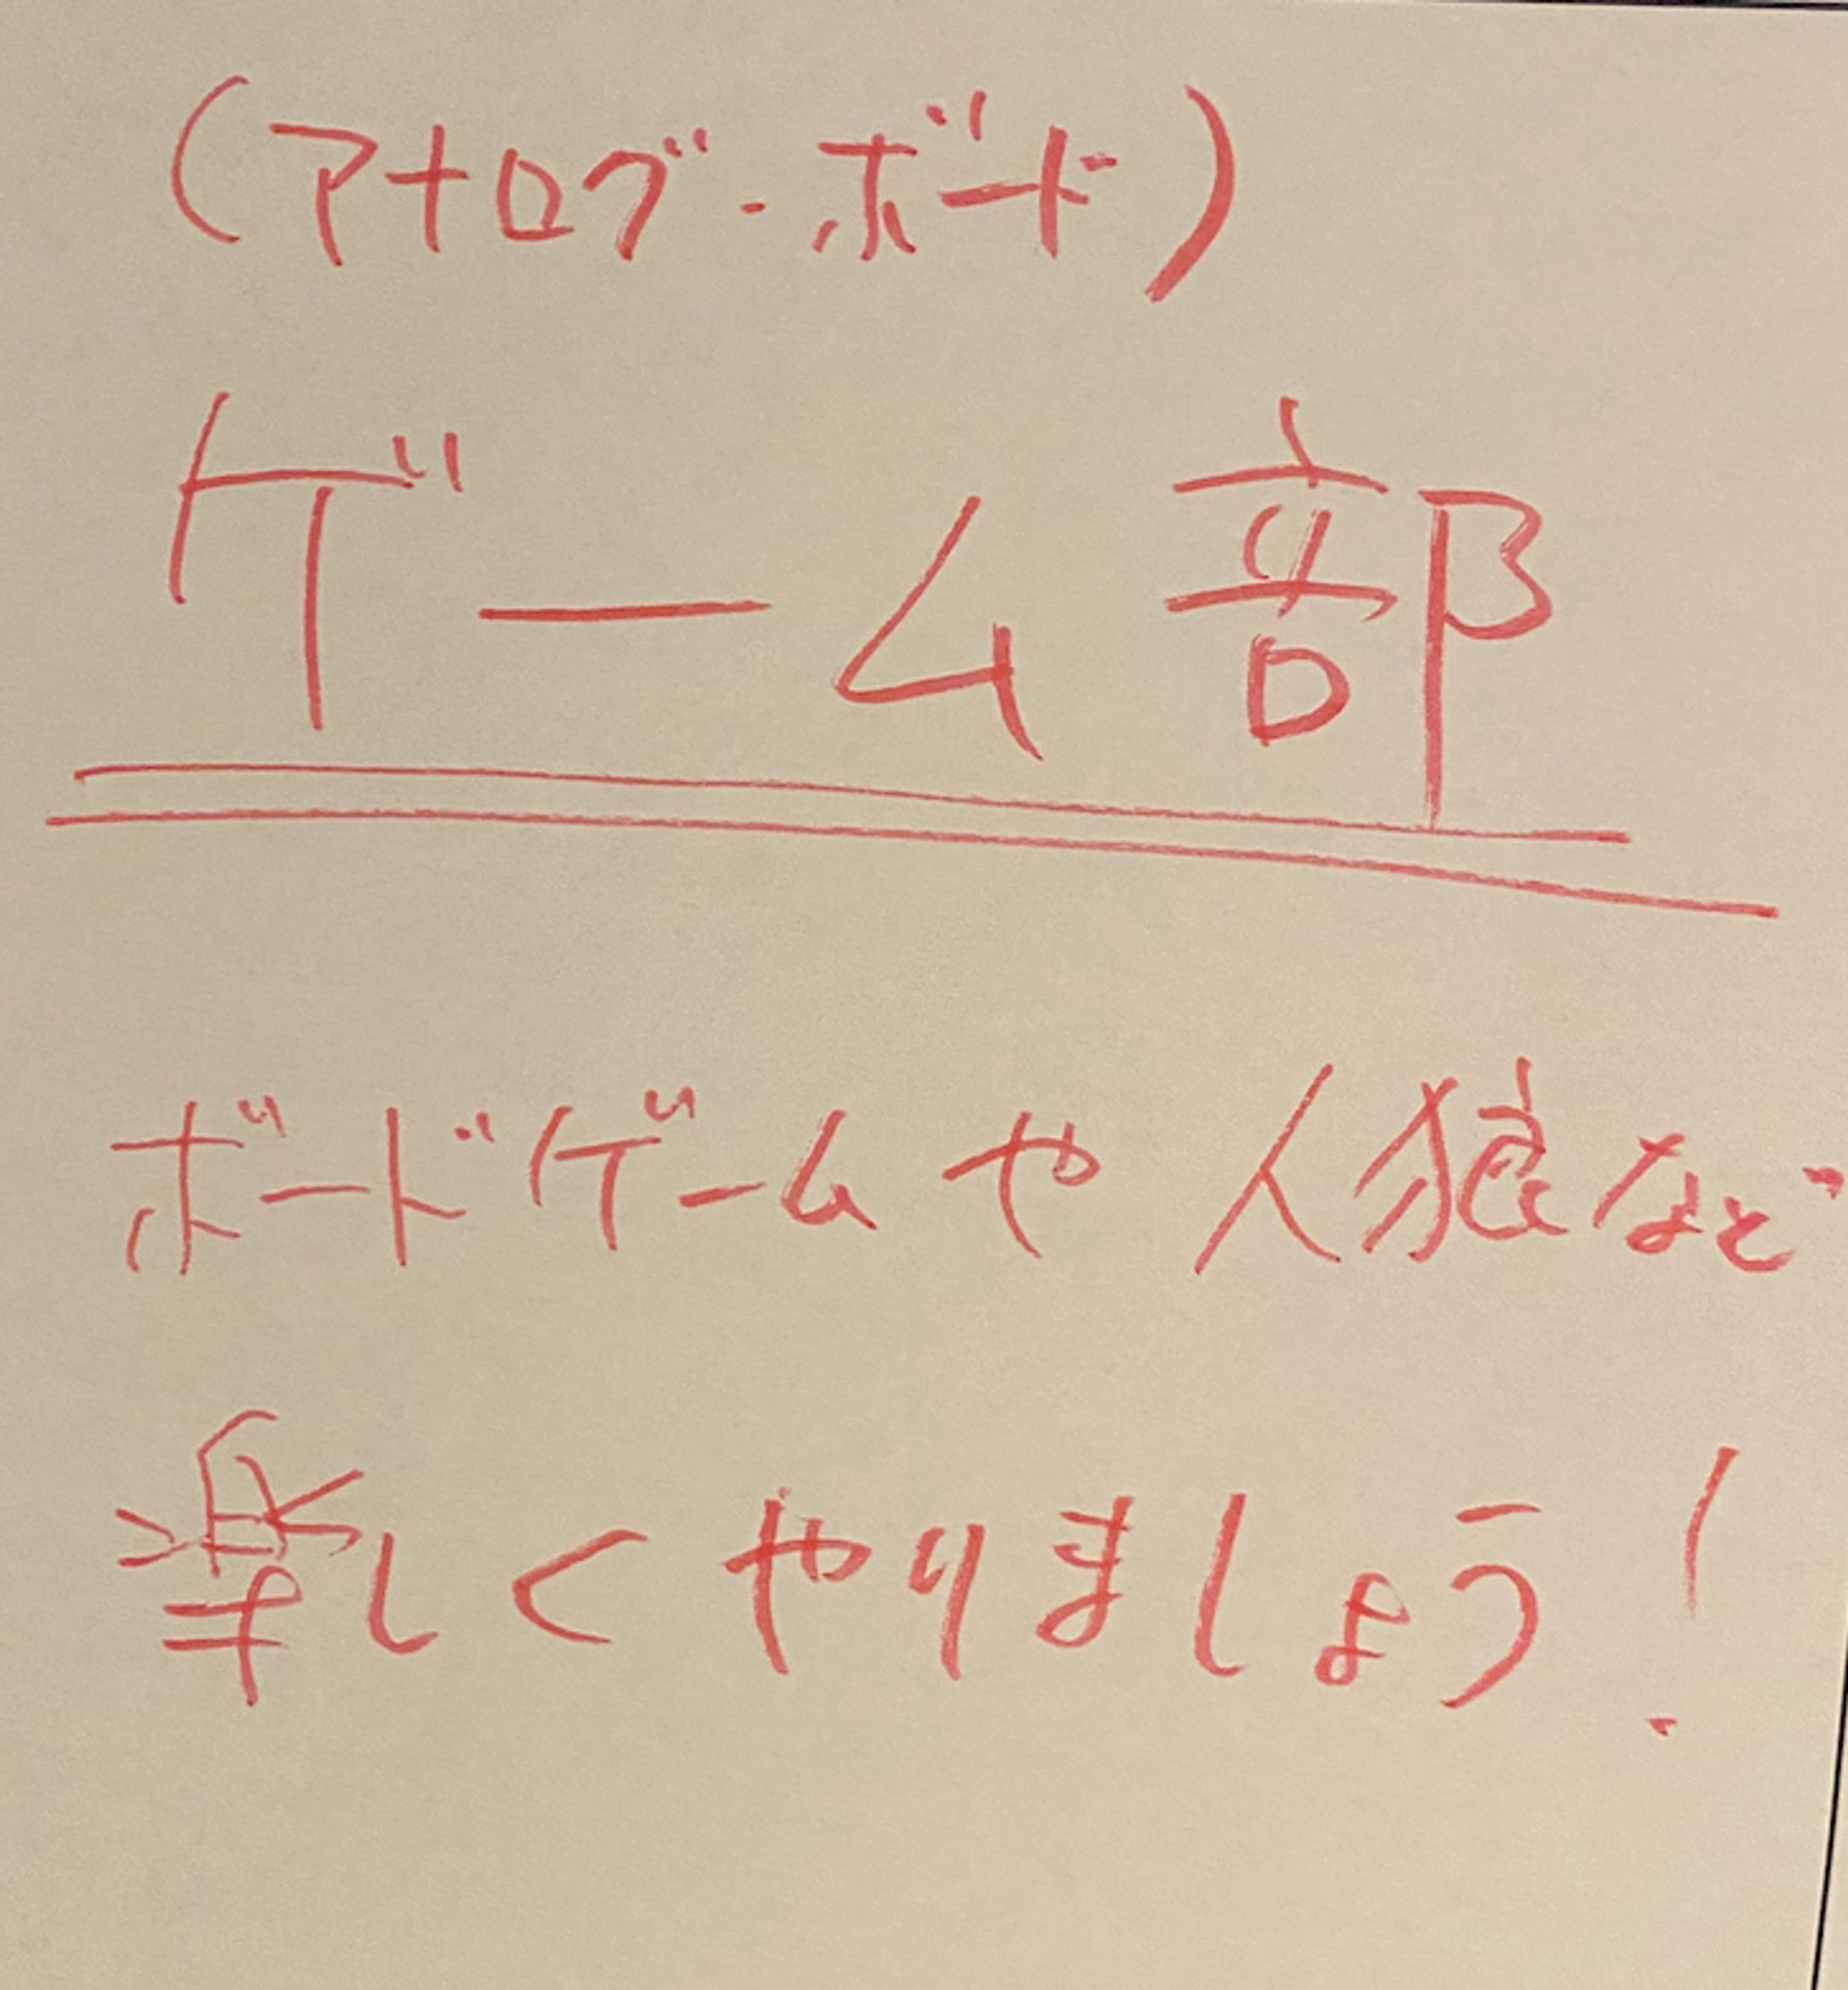 (アナログ・ボード)
ゲーム部
ボードゲームや人狼など
楽しくやりましょう!